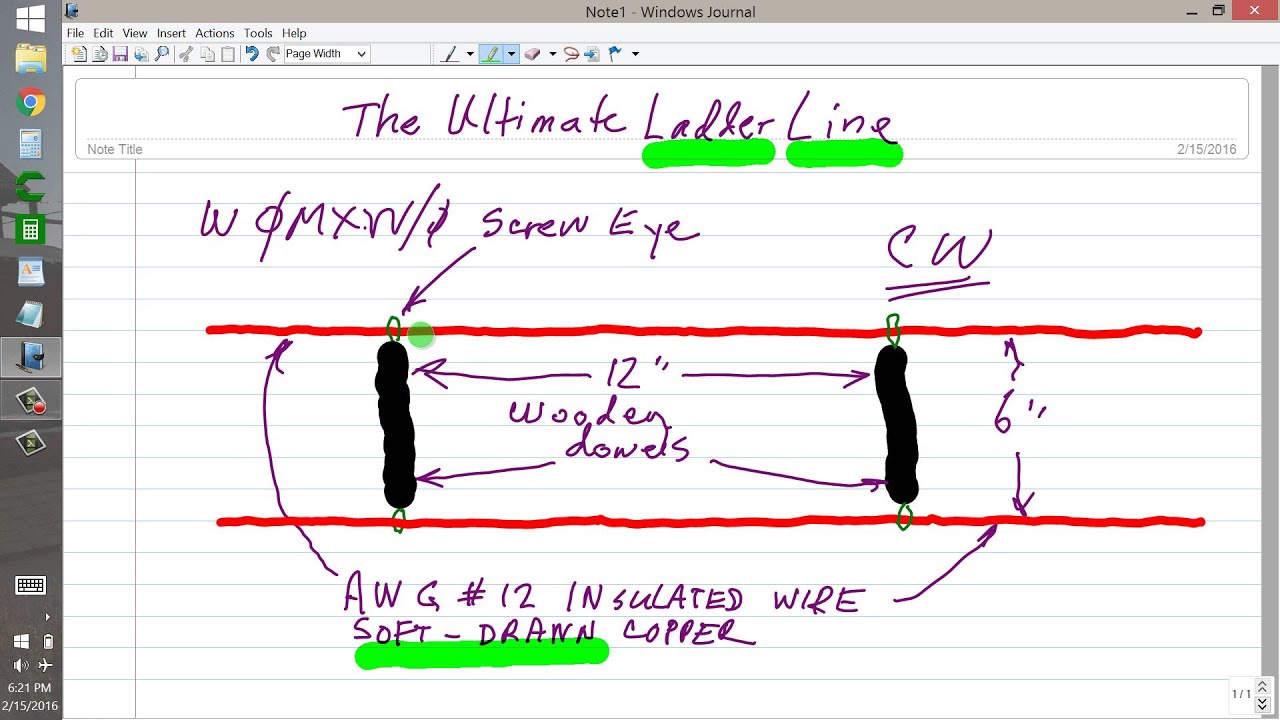 Note1 - Windows Journal
File Edit View Insert Actions Tools Help
Page Width
The Ultimate Ladder Line
Note Title
2/15/2016
WØMXW/Ø Screw Eye
CW
12"
Wooden
dowels
6"
AWG #12 INSULATED WIRE
SOFT-DRAWN COPPER
6:21 PM
2/15/2016
1 / 1